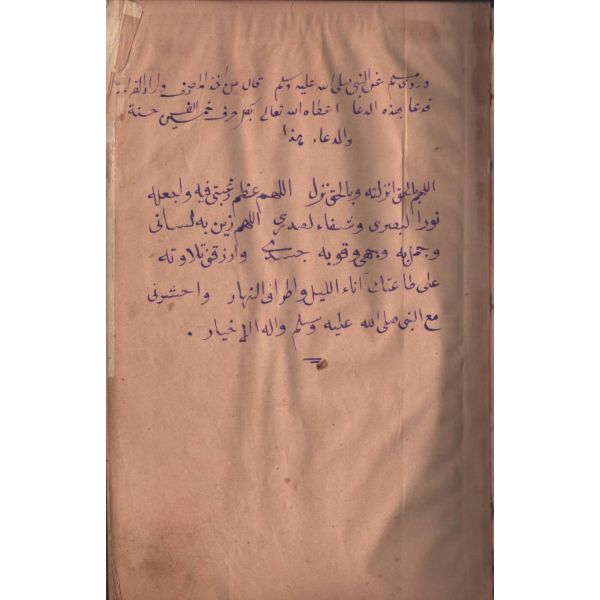 وروى مسلم عن النبي صلى الله عليه وسلم قال من اخذ المصحف واراد القراءة
فدعا بهذه الدعا اعطاه الله تعالى بكل حرف خمس الفين حسنة
والدعاء هذا
اللهم بالحق انزلته وبالحق نزل اللهم عظم رغبتي فيه واجعله
نورا لبصرى وشفاء لصدرى اللهم زين به لسانى
وجمل به وجهى وقو به جسدى وارزقنى تلاوته
على طاعتك آناء الليل واطراف النهار واحشرنى
مع النبى صلى الله عليه وسلم واله الاخيار .